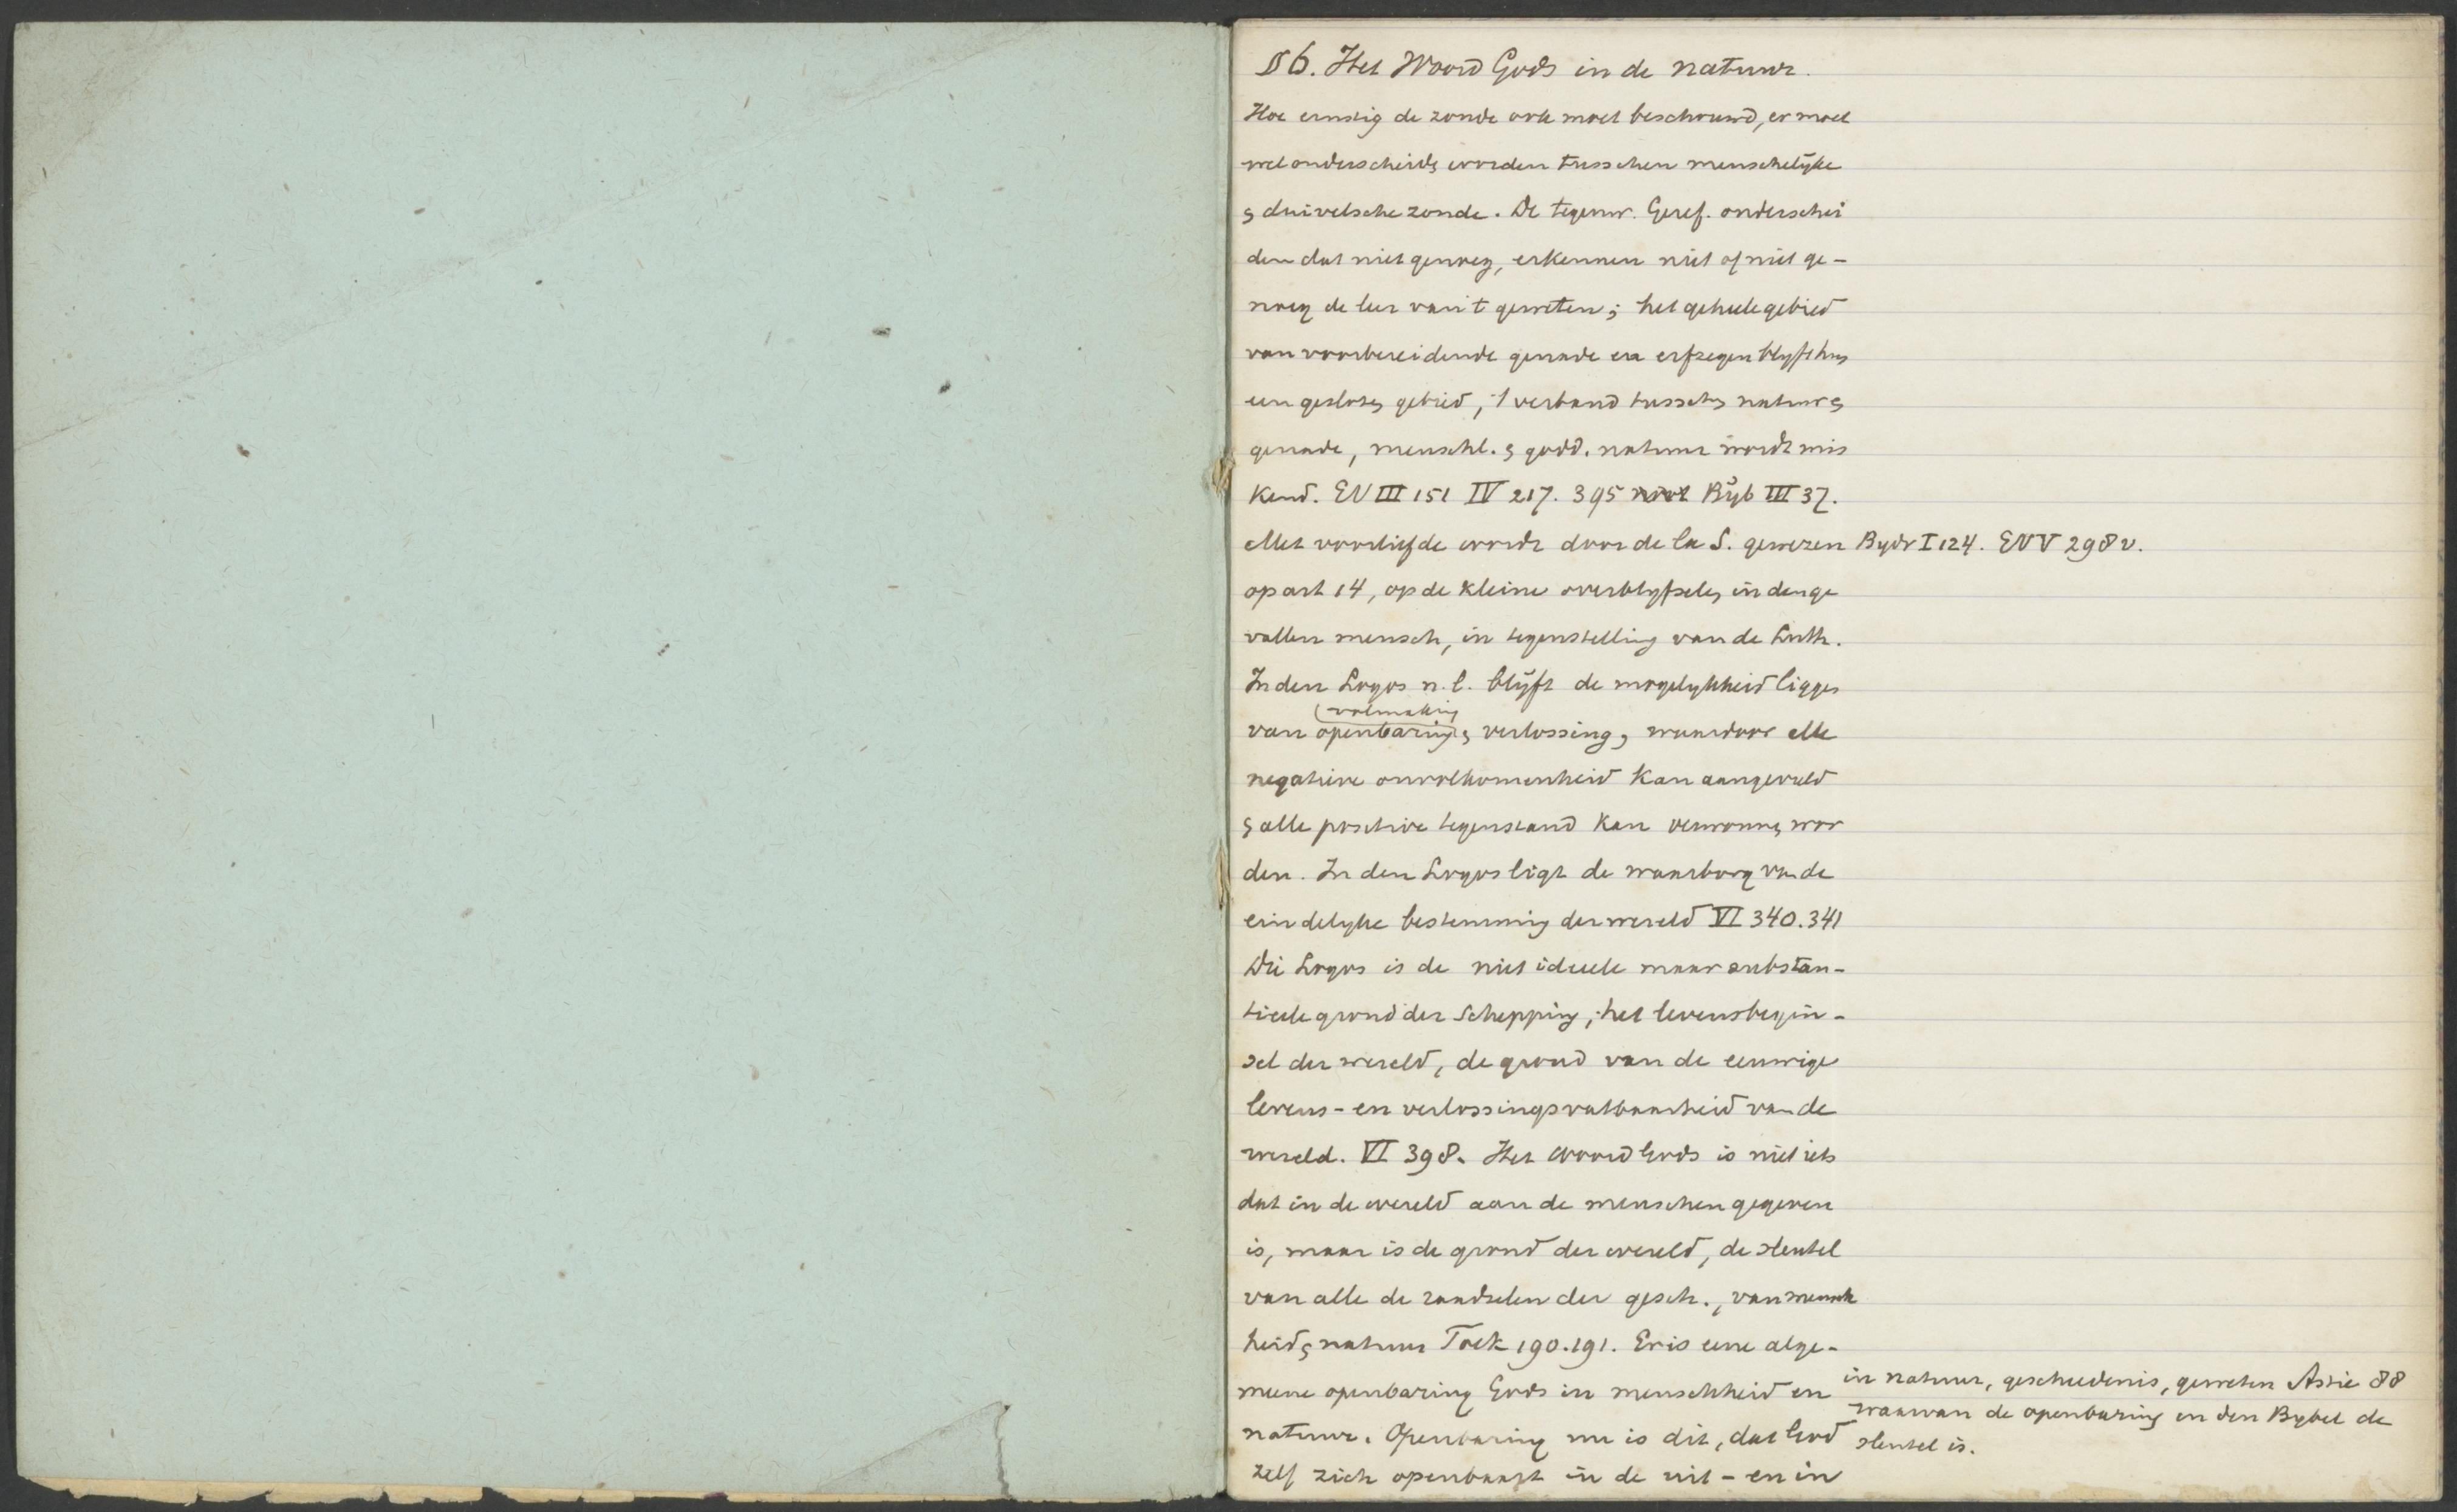 § 6. Het Woord Gods in de natuur.
Hoe ernstig de zonde ook moet beschouwd, er moet
wel onderscheidn worden tusschen menschelijke
& duivelsche zonde. De tegenw. Geref. onderschei
den dat niet genoeg, erkennen niet of niet ge-
noeg de leer van 't geweten; het geheele gebied
van voorbereidende genade en erfzegen blyft hun
een geslotn gebied, 't verband tusschn natuur &
genade, menschl. & godd. natuur wordt mis
kend. EV III 151 IV 217. 395 Byb III 37.
Met voorliefde wordt door de la S. gewezen Bydr I 124. EV V 298 v.
op art 14, op de kleine overblyfseln in den ge
vallen mensch, in tegenstelling van de Luth.
In den Logos n.l. blijft de mogelykheid liggen
volmaking
van openbaring & verlossing, waardoor elke
negatieve onvolkomenheid kan aangevuld
& alle positive tegenstand kan verwonnn wor
den. In den Logos ligt de waarborg van de
eindelyke bestemming der wereld VI 340. 341
Die Logos is de niet ideeele maar substan-
tieele grond der Schepping, het levensbegin-
sel der wereld, de grond van de eeuwige
levens- en verlossingsvatbaarheid van de
wereld. VI 398. Het Woord Gods is niet iets
dat in de wereld aan de menschen gegeven
is, maar is de grond der wereld, de sleutel
van alle de raadselen der gesch., van mensch
heid & natuur Toek 190. 191. Er is eene alge-
meene openbaring Gods in menschheid en
in natuur, geschiedenis, geweten Astié 88
waarvan de openbaring en den Bybel de
sleutel is.
natuur. Openbaring nu is dit, dat God
zelf zich openbaart in de uit- en in